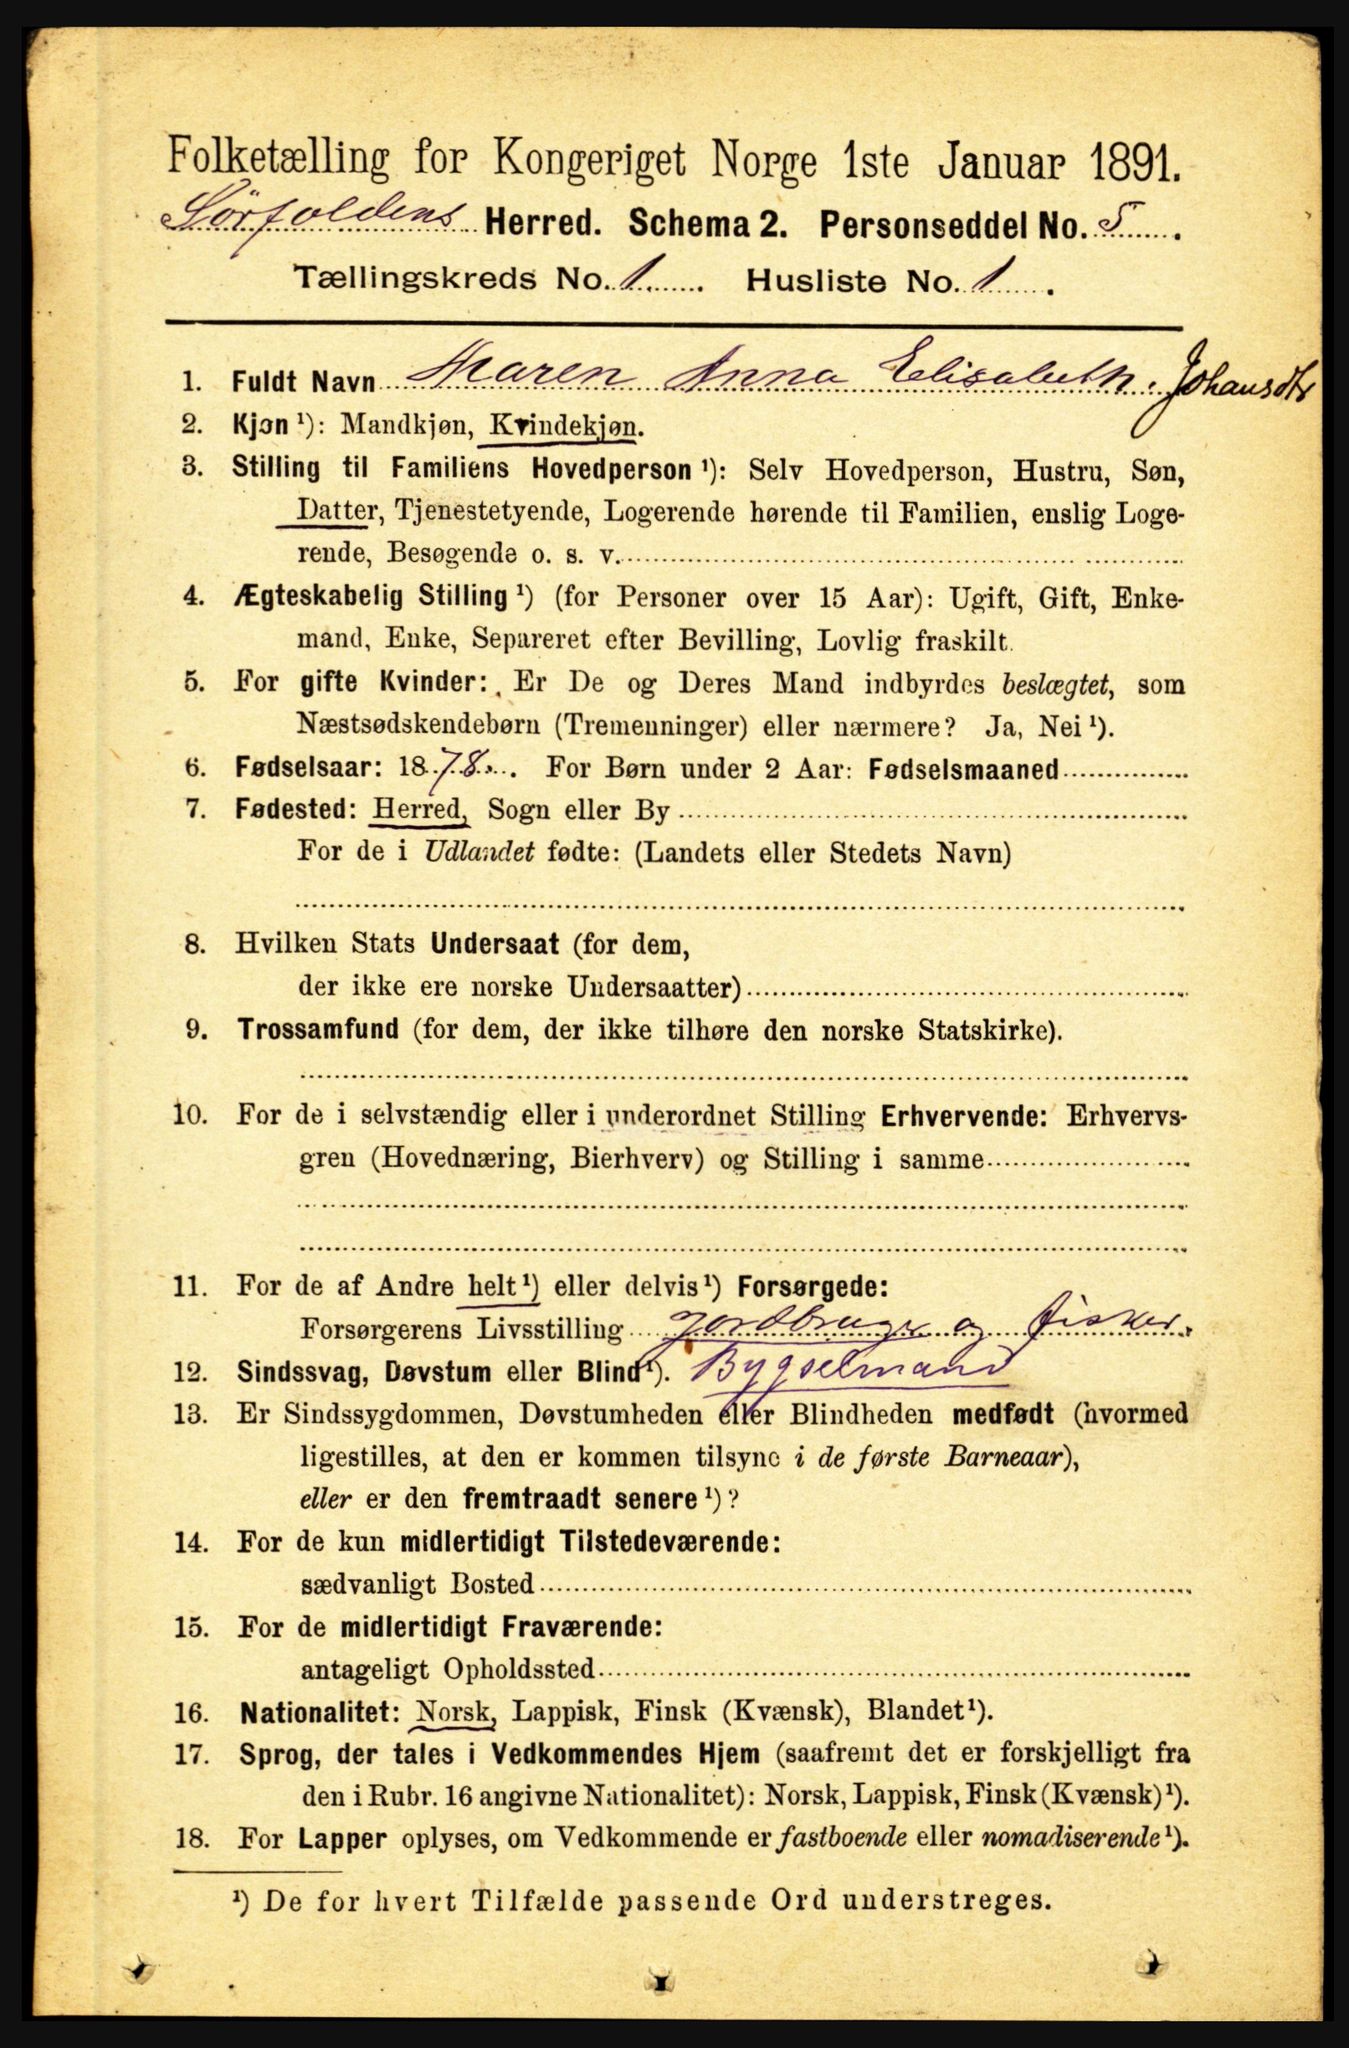 Folketælling for Kongeriget Norge 1ste Januar 1891.
Sørfoldens Herred. Schema 2. Personseddel No. 5.
Tællingskreds No. 1. Husliste No. 1.
1. Fuldt Navn Maren Anna Elisabeth. Johansdtr
2. Kjøn ¹): Mandkjøn, Kvindekjøn.
3. Stilling til Familiens Hovedperson ¹): Selv Hovedperson, Hustru, Søn,
Datter, Tjenestetyende, Logerende hørende til Familien, enslig Loge-
rende, Besøgende o. s. v.
4. Ægteskabelig Stilling ¹) (for Personer over 15 Aar): Ugift, Gift, Enke-
mand, Enke, Separeret efter Bevilling, Lovlig fraskilt.
5. For gifte Kvinder: Er De og Deres Mand indbyrdes beslægtet, som
Næstsødskendebørn (Tremenninger) eller nærmere? Ja, Nei ¹).
6. Fødselsaar: 1878. For Børn under 2 Aar: Fødselsmaaned
7. Fødested: Herred, Sogn eller By
For de i Udlandet fødte: (Landets eller Stedets Navn)
8. Hvilken Stats Undersaat (for dem,
der ikke ere norske Undersaatter)
9. Trossamfund (for dem, der ikke tilhøre den norske Statskirke).
10. For de i selvstændig eller i underordnet Stilling Erhvervende: Erhvervs-
gren (Hovednæring, Bierhverv) og Stilling i samme
11. For de af Andre helt ¹) eller delvis ¹) Forsørgede:
Forsørgerens Livsstilling Jordbruger og fisker.
12. Sindssvag, Døvstum eller Blind ¹). Bygselmand
13. Er Sindssygdommen, Døvstumheden eller Blindheden medfødt (hvormed
ligestilles, at den er kommen tilsyne i de første Barneaar),
eller er den fremtraadt senere ¹)?
14. For de kun midlertidigt Tilstedeværende:
sædvanligt Bosted
15. For de midlertidigt Fraværende:
antageligt Opholdssted
16. Nationalitet: Norsk, Lappisk, Finsk (Kvænsk), Blandet ¹).
17. Sprog, der tales i Vedkommendes Hjem (saafremt det er forskjelligt fra
den i Rubr. 16 angivne Nationalitet): Norsk, Lappisk, Finsk (Kvænsk) ¹).
18. For Lapper oplyses, om Vedkommende er fastboende eller nomadiserende ¹).
¹) De for hvert Tilfælde passende Ord understreges.